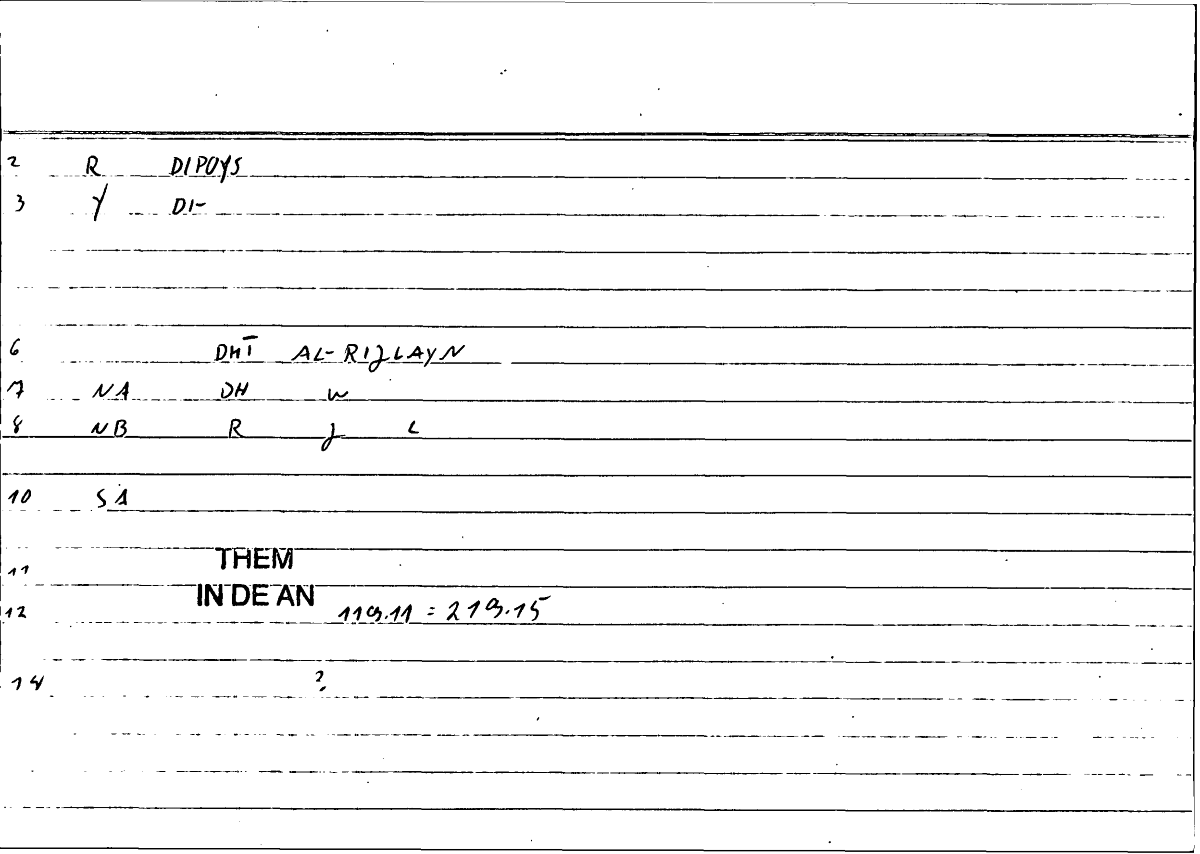 2 R DIPOYS
3 Y DI-
6 DHĪ AL-RIJLAYN
7 NA DH W
8 NB R J L
10 SA
11 THEM
IN DE AN
12 119.11 = 219.15
14 ?